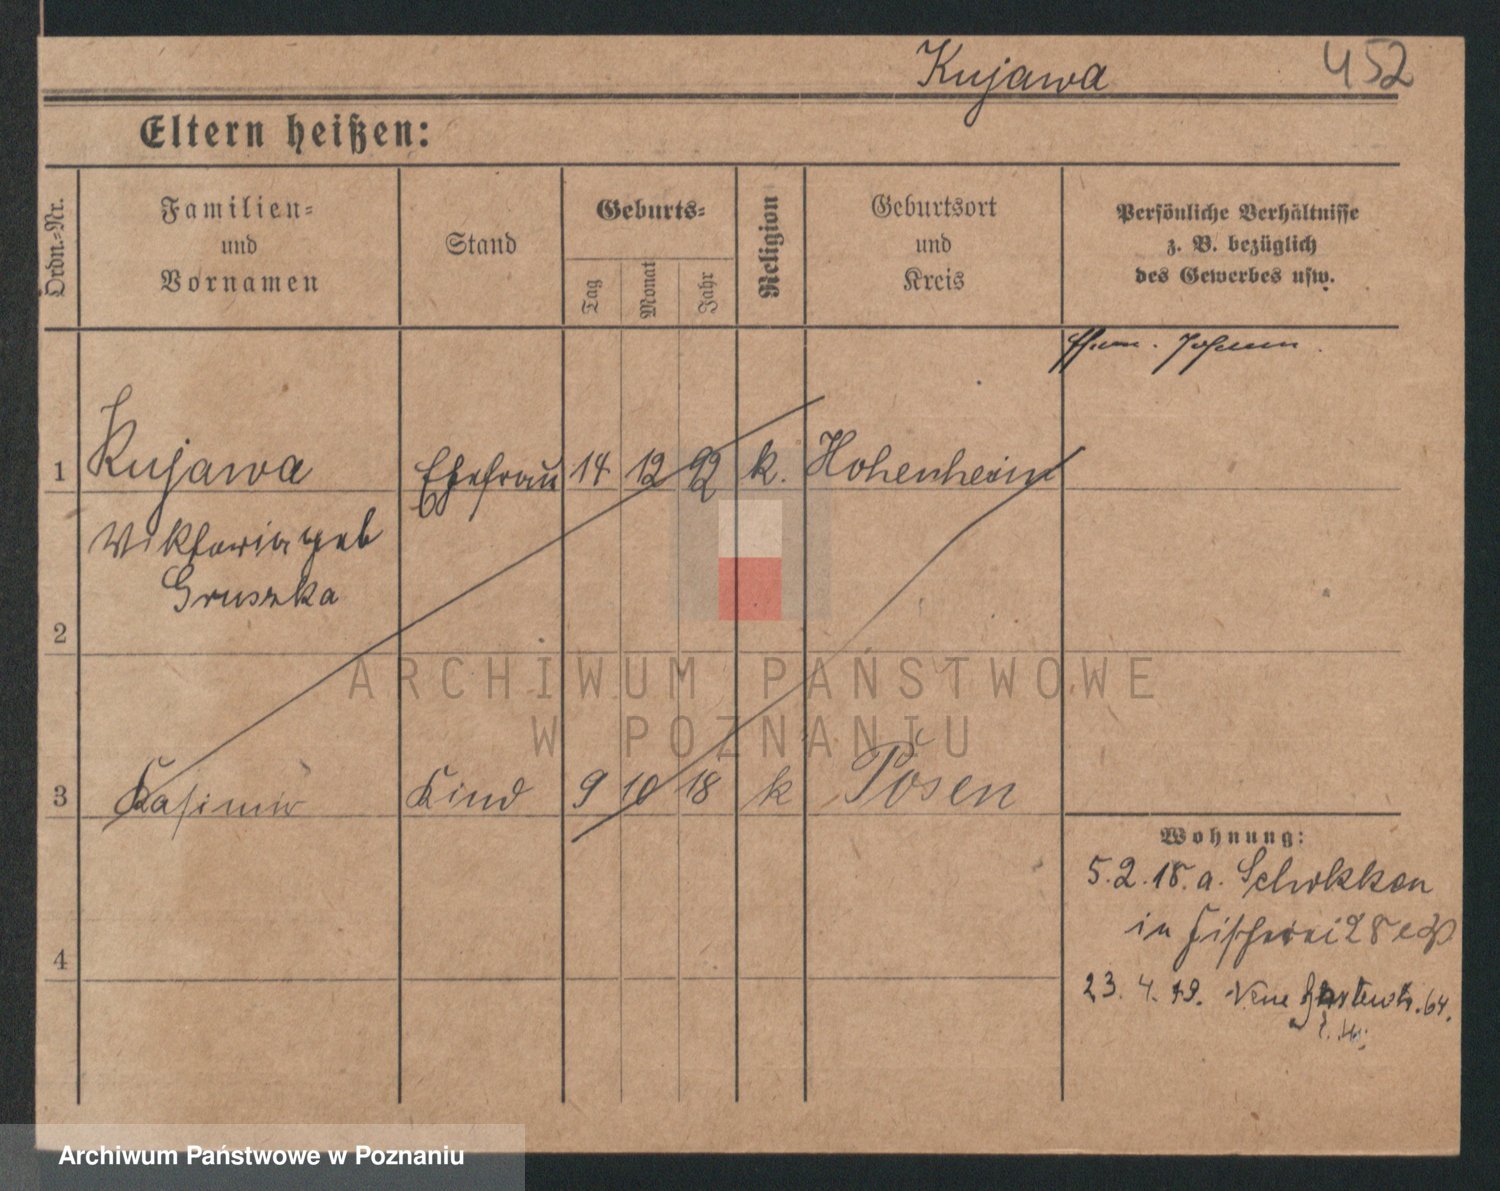 Kujawa 452
Eltern heißen:
Ordn.-Nr.
Familien-
und
Vornamen
Stand
Geburts-
Tag
Monat
Jahr
Religion
Geburtsort
und
Kreis
Persönliche Verhältnisse
z. B. bezüglich
des Gewerbes usw.
Johann
1 Kujawa Ehefrau 14 12 92 k. Hohenheim
Viktoria geb
Gruszka
2
3 Kasimir Kind 9 10 18 k Posen
Wohnung:
5.2.18. a. Schokken
in Fischerei 28
4
23. 4. 19. Neue 64.
ARCHIWUM PAŃSTWOWE
W POZNANIU
Archiwum Państwowe w Poznaniu